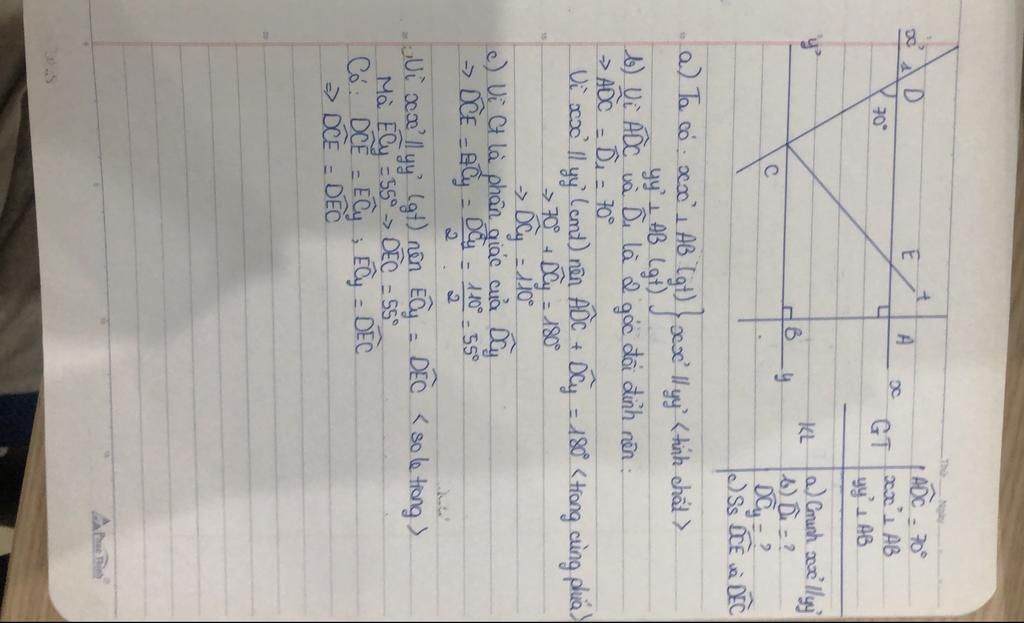 Thứ Ngày
x'
1
D
70°
y'
C
E
t
A
x
B
y
GT
ADC = 70°
xx' ⊥ AB
yy' ⊥ AB
KL
a) Cminh xx' // yy'
b) D̂₁ = ?
DĈy = ?
c) SS DĈE và DÊC
a) Ta có: xx' ⊥ AB (gt)
yy' ⊥ AB (gt) } xx' // yy' <tính chất>
b) Vì ADC và D̂₁ là 2 góc đối đỉnh nên:
⇒ ADC = D̂₁ = 70°
Vì xx' // yy' (cmt) nên ADC + DĈy = 180° <trong cùng phía>
⇒ 70° + DĈy = 180°
⇒ DĈy = 110°
c) Vì Ct là phân giác của DĈy
⇒ DĈE = EĈy = DĈy/2 = 110°/2 = 55°
Vì xx' // yy' (gt) nên EĈy = DÊC <so le trong>
Mà EĈy = 55° → DÊC = 55°
Có: DĈE = EĈy ; EĈy = DÊC
⇒ DĈE = DÊC